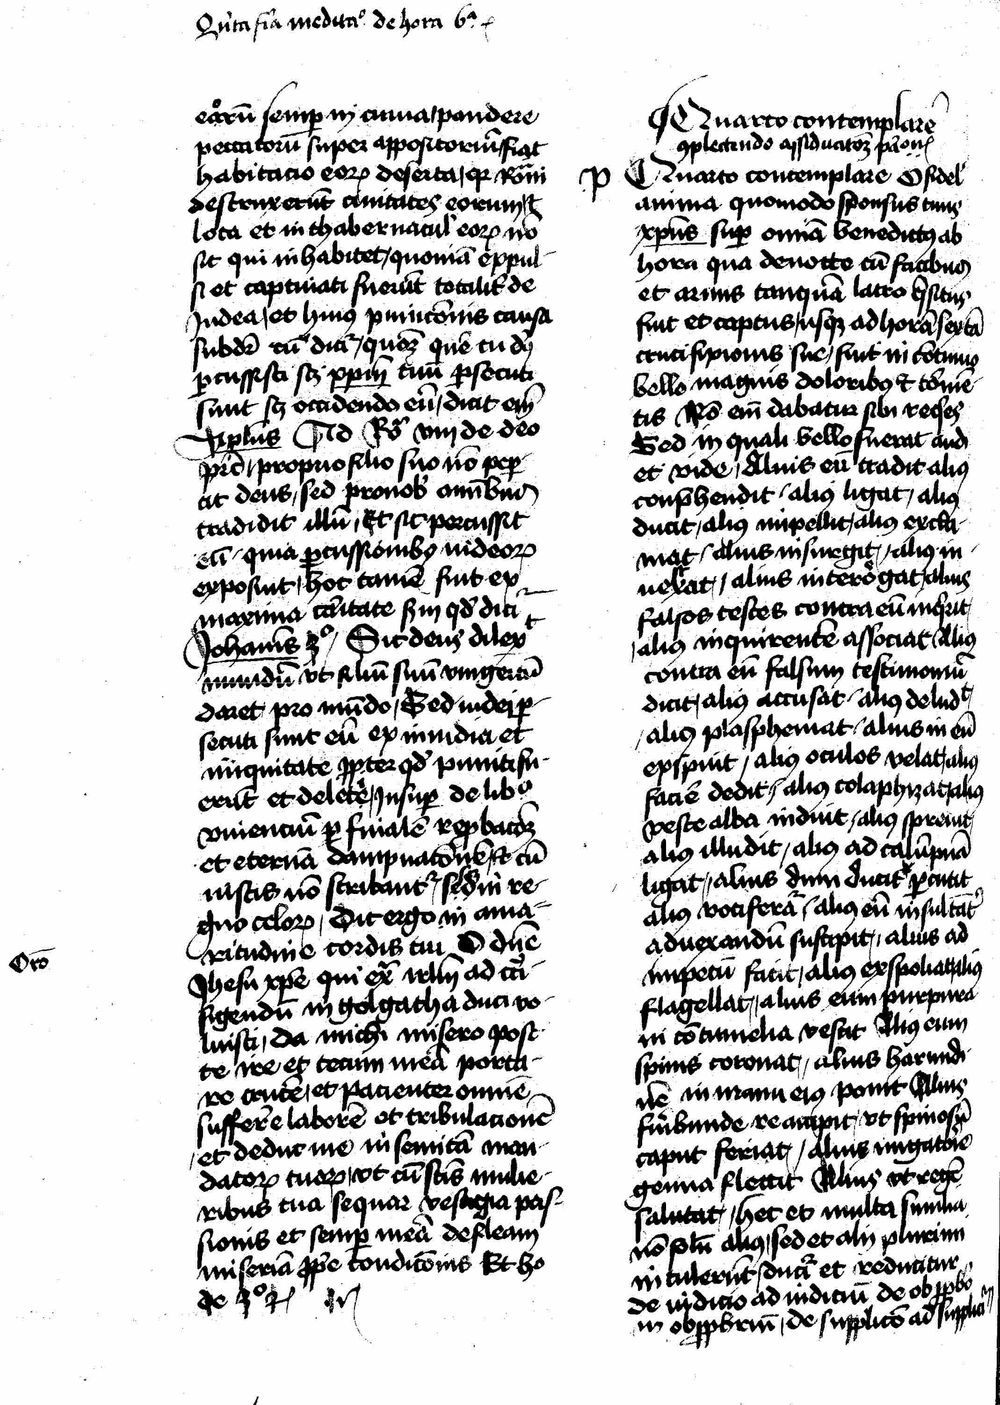 Qu̅ta fi̅a medita° de hora 6ª
eoꝝu̅ semp̲ in curua / pandere
peccatoru̅ super appositoriu̅ fiat
habitacio eoꝝ deserta / qꝛ Ro̅ni
destruxeru̅t ciuitates eorum &
loca et in thabernacul' eoꝝ no̅
sit qui inhabitet / quonia̅ expul-
si et captiuati fueru̅t totalit' de
Judea / et huiꝰ punico̅nis causa
subd̅r cu̅ dicit̉ / quoꝫ que̅ tu do̅
p̲cussisti sꝫ xp̅m tuu̅ p̲secuti
sunt sꝫ occidendo eu̅ / dicit em̅
Ap̅lus Ad Ro̅ viij de deo
pr̅e / proprio filio suo no̅ pep̲-
cit deus / sed pro nob' omnibus
tradidit illu̅ / Et sic percussit
eu̅ / quia p̲cussionibꝰ iudeoꝝ
exposuit / hoc tame̅ fuit ex
maxima caritate s̅m qd̅ dicit̉
Johanis 3° / Sic deus dilex̅
mundu̅ vt filiu̅ suu̅ vnigenitu̅
daret pro mu̅do / Sed iudei p̲-
secuti sunt eu̅ ex inuidia et
iniquitate p̲pter qd̅ puniti fu-
erut et delete̅ / Insup̲ de libro
viuenciu̅ p̲ finale̅ rep̲bacoꝫ
et eterna̅ dampnato̅ne̅ / & cu̅
iustis no̅ scribant̉ / scꝫ in re-
gno celoꝝ / Dic ergo in ama-
ritudine cordis tui O dn̅e
Oro̅
Jhesu xp̅e qui ex̅ irl̅m ad cru̅-
figendu̅ in golgatha duci vo-
luisti / Da michi misero post
te ire et tecum mea̅ porta-
re cruce̅ / et pacienter omne̅
sufferre labore̅ et tribulacione̅
et deduc me in semita̅ man-
datoꝝ tuoꝝ / vt cu̅ sctis mulie-
ribus tua sequar vestigia pas-
sionis et semp̲ mea̅ defleam
miseria̅ p̲p̲e co̅ndico̅nis Et ho
de 3°
Quarto contemplare
9plectendo assiduitatoꝫ
p Quarto contemplare O fidel'
anima quomodo sponsus tuus
xp̅us sup̲ omnia̅ benedictus ab
hora qua denocte cu̅ facibus
et armis tanqua̅ latro q̅situs
fuit et captus / usqꝫ ad hora̅ sexta̅
crucifixionis sue / fuit in co̅tinuo
bello magnis doloribꝰ & tome̅-
tis No̅ em̅ dabatur sibi requies
Sed in quali bello fuerat audi
et vide / Alius eu̅ tradit aliꝰ
comp̲hendit / aliꝰ ligat / aliꝰ
ducit / aliꝰ impellit / aliꝰ excla-
mat / alius insurgit / aliꝰ in-
uexat / alius interrogat / alius
falsos testes contra eu̅ inq̅rit
alius inquirente̅ associat Aliꝰ
contra eu̅ falsum testimoniu̅
dicit / aliꝰ accusat / aliꝰ deludit
aliꝰ plasphemat / alius in eu̅
expuit / aliꝰ oculos velat / aliꝰ
facie̅ cedit / aliꝰ colaphizat / aliꝰ
veste alba induit / aliꝰ spreuit
aliꝰ illudit / aliꝰ ad calu̅pna̅
ligat / alius dum ducit̉ p̲cutit
aliꝰ vociferat̉ / aliꝰ eu̅ insultat̉
ad uexandu̅ suscipit / alius ad
impetu̅ facit / aliꝰ exspoliat / aliꝰ
flagellat / alius eum purpura
in co̅tumelia vestit Aliꝰ eum
spinis coronat / alius harundi-
ne̅ in manu eius ponit Alius
furibunde re accipit / vt spinosu̅
caput feriat / alius nugatorie
genua flectit Alius vt rege̅
salutat / hec et multa similia
no̅ solu̅ aliꝰ / sed et alij plurimi
intuleru̅t / ducit̉ et reducitur
de iudicio ad iudiciu̅ de obp̲brio
in obp̲briu̅ / de supplico̅ ad suppliciu̅